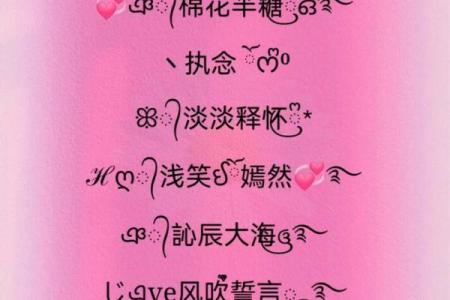 💞এ᭄棉花半糖ꦿ໖࿐
丶执念ོꦿ໊ღº
ꕥ᭄淡淡释怀ꦿ໊*
ℋღ᭄浅笑ꦿོ嫣然💞࿐
এ᭄訫辰大海ꦿ໊࿐
じ☙ve风吹誓言ꦿ࿐